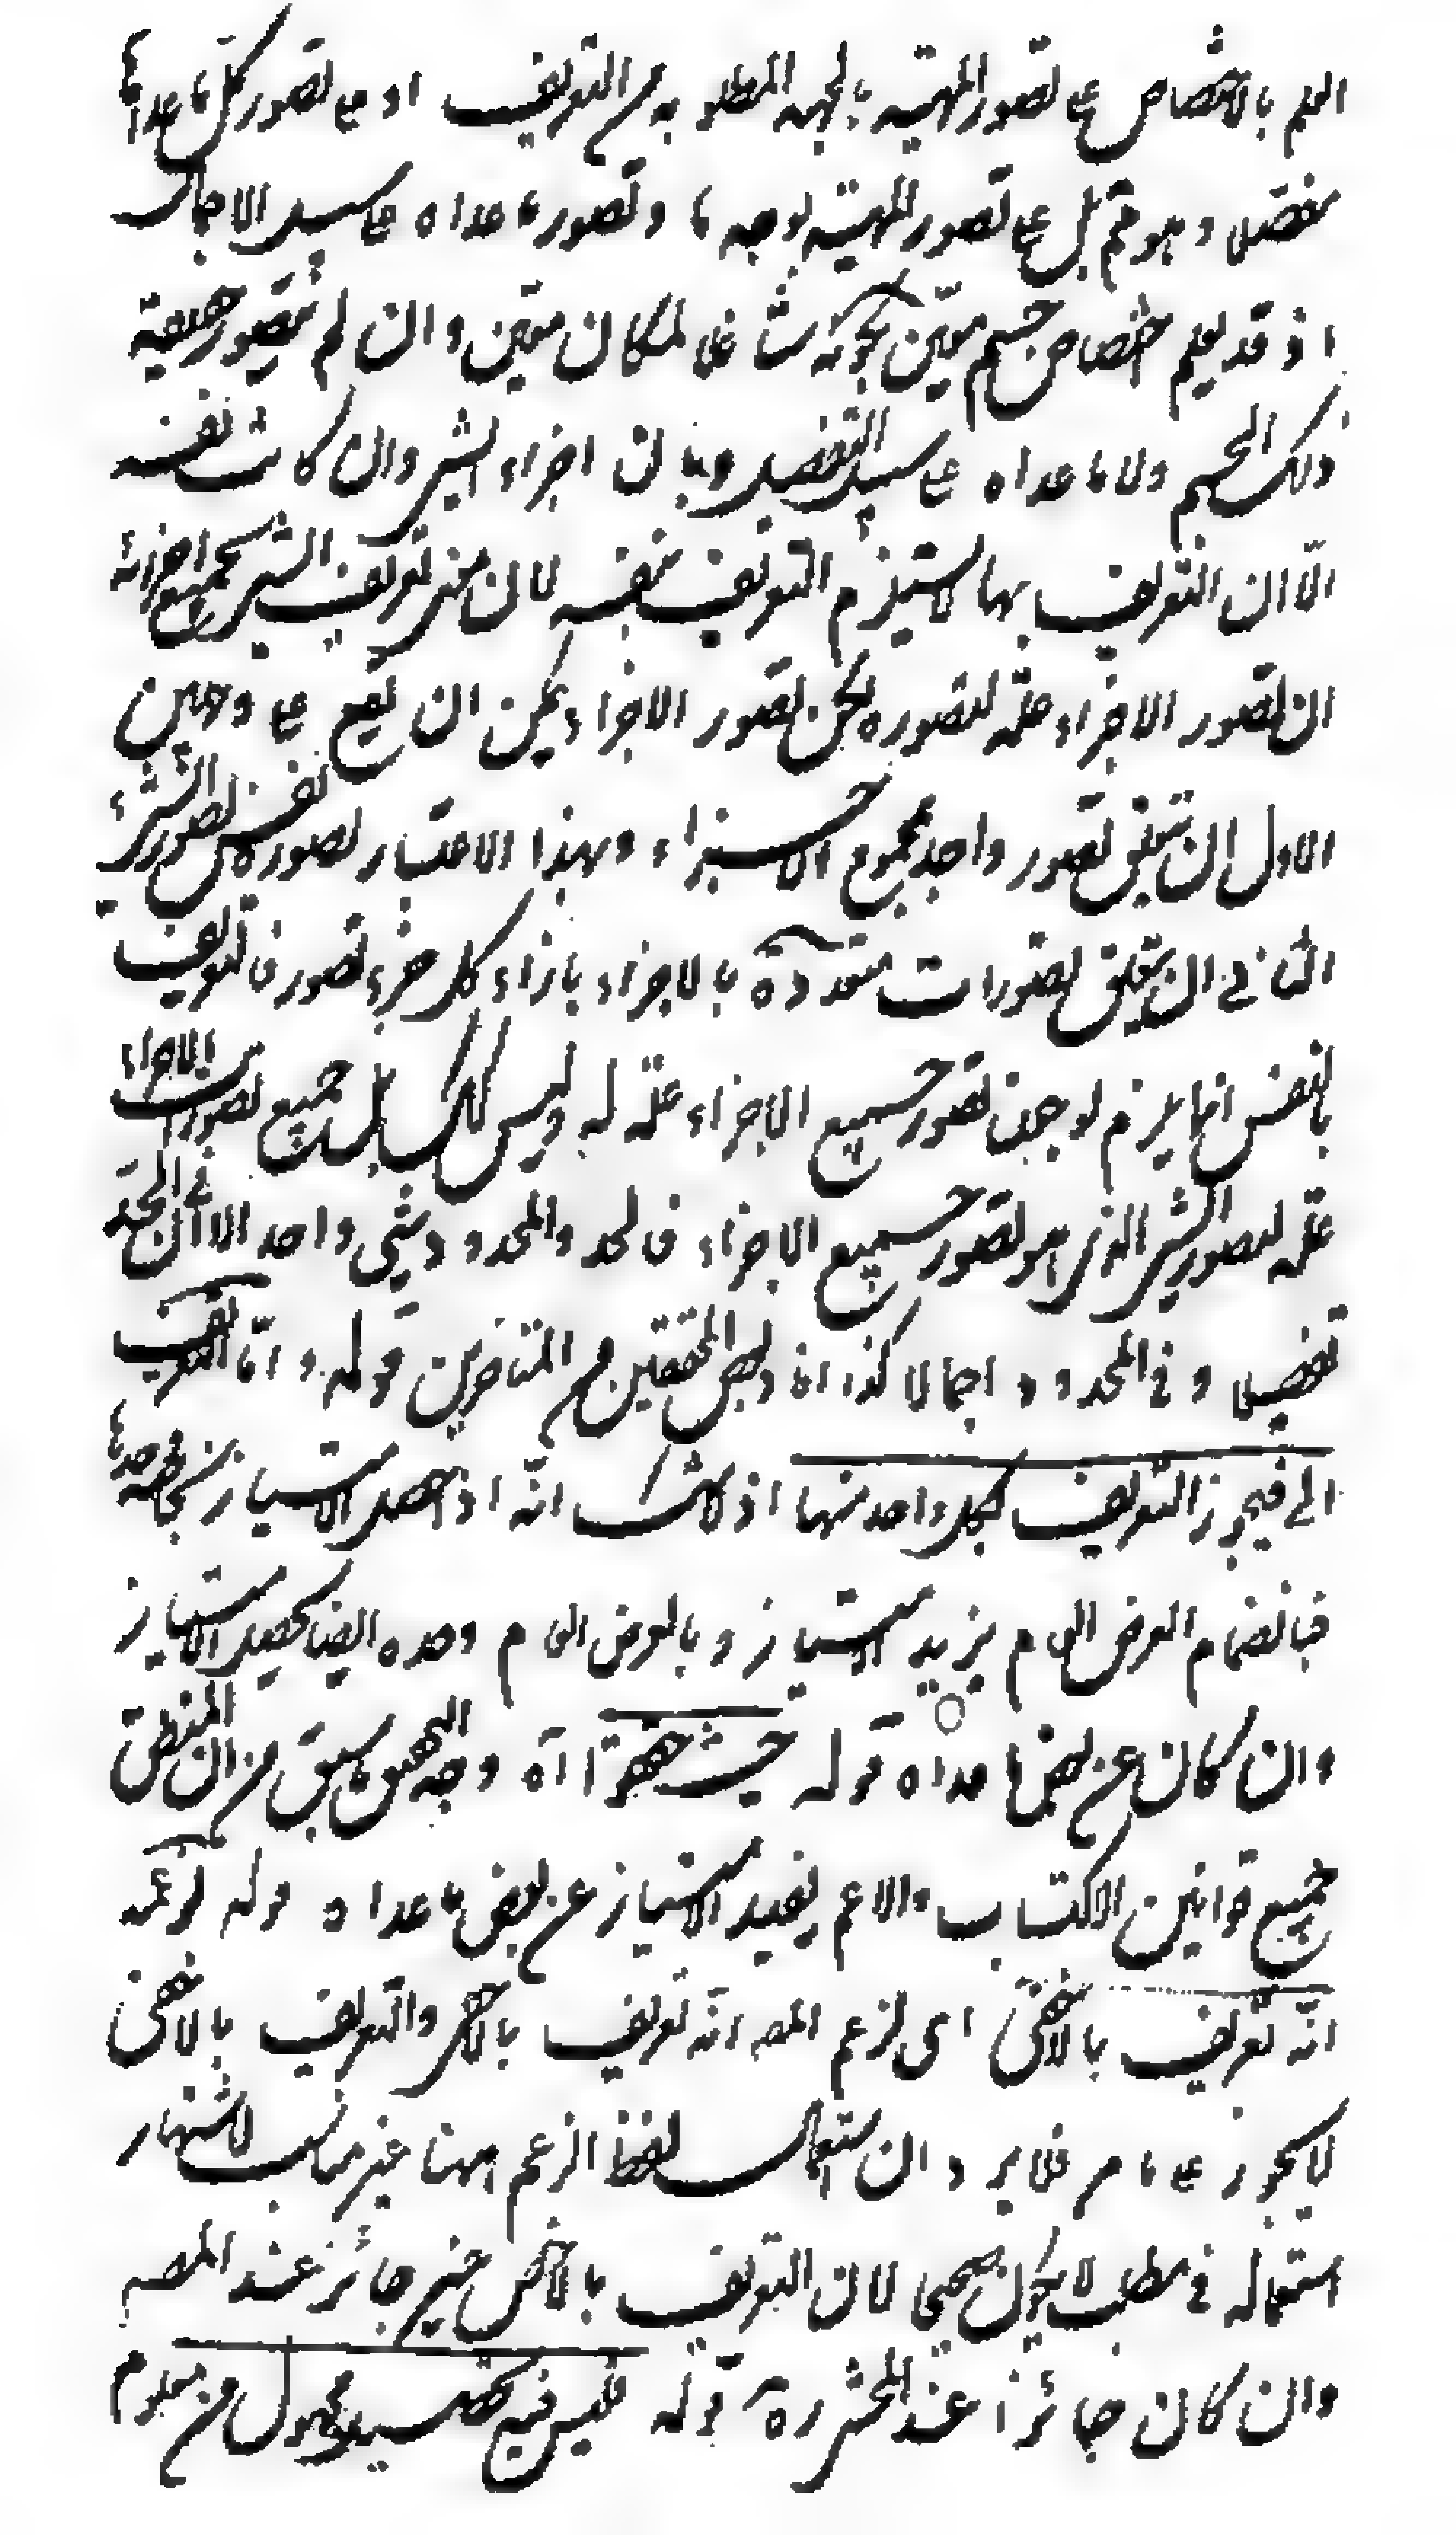 العلم بالاختصاص على تصور المهية بالجهة المطلوبة من التعريف او على تصور كل ما عداها
مفصلا وهو تم بل على تصور المهية بوجه ما وتصور ما عداه على سبيل الاجمال
اذ قد يعلم اختصاص جسم معين بكونه شاغلا لمكان معين وان لم يتصور حقيقة
ذلك الجسم ولا ما عداه على سبيل التفصيل وبان اجزاء الشئ وان كانت نفسه
الا ان التعريف بها لا يستلزم التعريف بنفسه لان معنى تعريف الشئ بجميع اجزائه
ان تصور الاجزاء علة لتصوره لكن تصور الاجزاء يمكن ان يقع على وجهين
الاول ان يتعلق تصور واحد بمجموع الاجزاء وبهذا الاعتبار تصوره نفس تصور الشئ
الثانى ان يتعلق تصورات متعددة بالاجزاء بازاء كل جزء تصور فالتعريف
بالنفس انما يلزم لو جعلنا تصور جميع الاجزاء علة له وليس كذلك بل جميع تصورات الاجزاء
علة لتصور الشئ الذى هو تصور جميع الاجزاء فالحد والمحدود شئ واحد الا ان فى الحد
تفصيلا وفى المحدود اجمالا كذا افاد بعض المحققين من المتأخرين قوله واما التعريف
الخ فيجوز التعريف بكل واحد منها اذ لا شك انه اذا حصل الامتياز بالخاصة وحدها
فبانضمام العرض العام يزيد الامتياز وبالعرض العام وحده ايضا يحصل الامتياز
وان كان عن بعض ما عداه قوله حيث جوزوا آه وجه التحقيق ما سبق من ان المنطق
جميع قوانين الاكتساب والاعم يفيد الامتياز عن بعض ما عداه قوله لزعمه
انه تعريف بالاخفى اى لزعم المصـ انه تعريف بالاخص والتعريف بالاخفى
لا يجوز على ما مر فلا يرد ان استعمال لفظ الزعم ههنا غير مناسب لاشتهار
استعماله فى مطلب لا يكون صحيحا لان التعريف بالاخص غير جائز عند المصـ
وان كان جائزا عند المحشى ره قوله فليس فيه تحصيل مجهول من معلوم